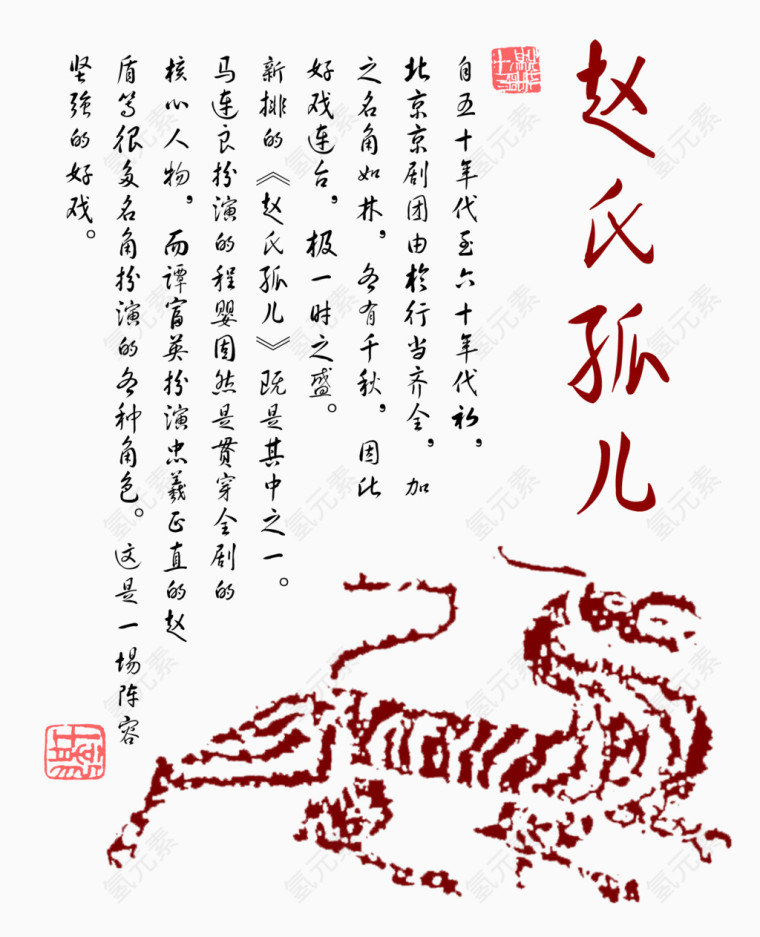 赵氏孤儿
自五十年代至六十年代初，
北京京剧团由於行当齐全，加
之名角如林，各有千秋，因此
好戏连台，极一时之盛。
新排的《赵氏孤儿》既是其中之一。
马连良扮演的程婴固然是贯穿全剧的
核心人物，而谭富英扮演忠義正直的赵
盾等很多名角扮演的各种角色。这是一場阵容
坚强的好戏。
氢元素